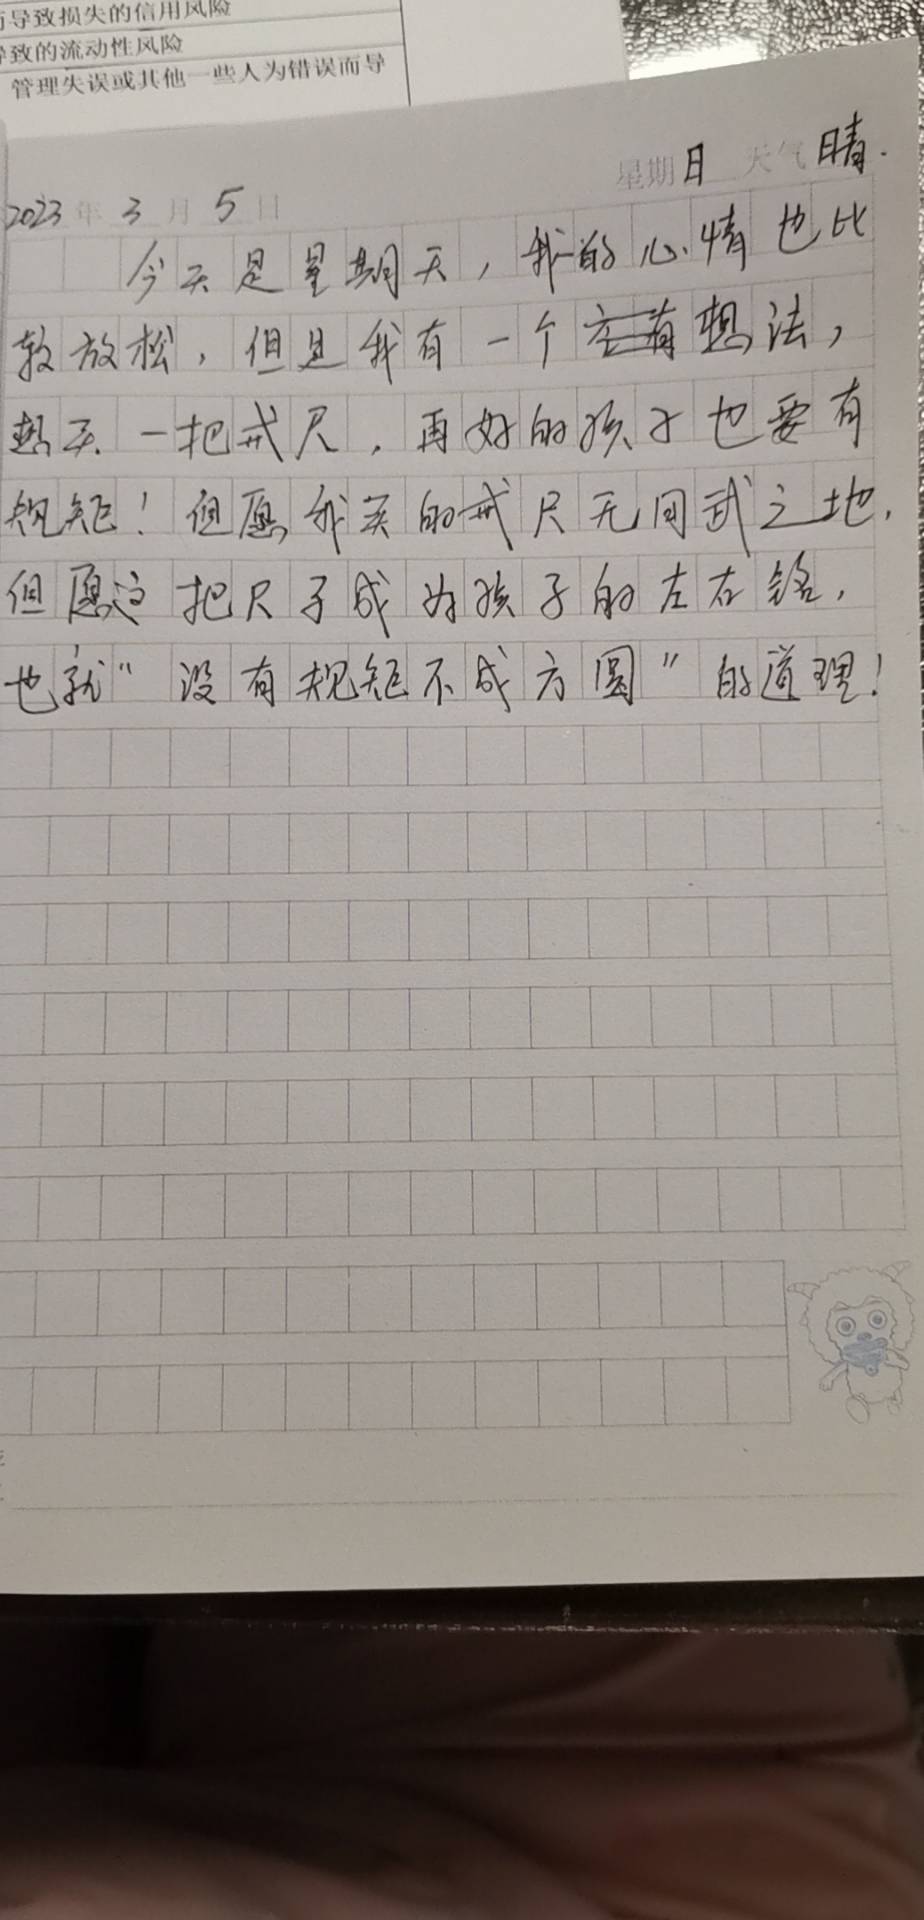 而导致损失的信用风险
导致的流动性风险
管理失误或其他一些人为错误而导
星期日 天气晴.
2023年3月5日
今天是星期天，我的心情也比
较放松，但是我有一个想法，
想买一把戒尺，再好的孩子也要有
规矩！但愿我买的戒尺无用武之地，
但愿这把尺子成为孩子的左右铭，
也就“没有规矩不成方圆”的道理！